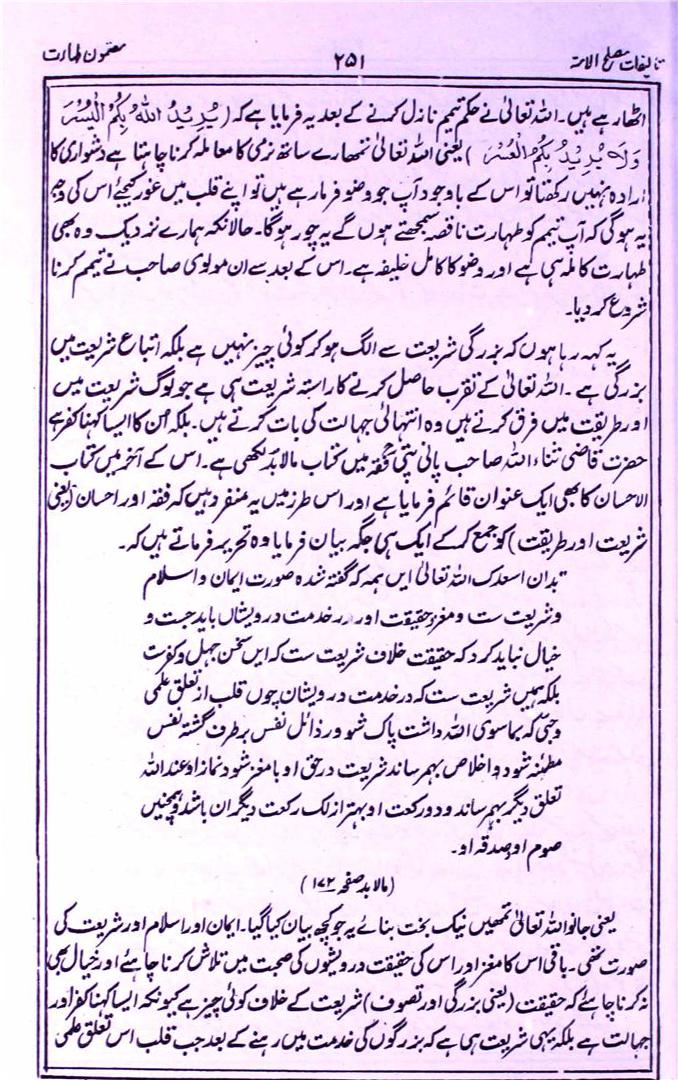 تالیفات مصلح الامۃ ۲۵۱ مضمون طہارت
اٹھا رہے ہیں۔ اللہ تعالیٰ نے حکم تیمم نازل کرنے کے بعد یہ فرمایا ہے کہ (يُرِيْدُ اللّٰهُ بِكُمُ الْيُسْرَ
وَلَا يُرِيْدُ بِكُمُ الْعُسْرَ) یعنی اللہ تعالیٰ تمہارے ساتھ نرمی کا معاملہ کرنا چاہتا ہے دشواری کا
ارادہ نہیں رکھتا تو اس کے باوجود آپ جو وضو فرما رہے ہیں تو اپنے قلب میں غور کیجئے اس کی وجہ
یہ ہوگی کہ آپ تیمم کو طہارت ناقصہ سمجھتے ہوں گے یہ چور ہوگا۔ حالانکہ ہمارے نزدیک وہ بھی
طہارت کاملہ ہی ہے اور وضو کا کامل خلیفہ ہے۔ اس کے بعد سے ان مولوی صاحب نے تیمم کرنا
شروع کر دیا۔
یہ کہہ رہا ہوں کہ بزرگی شریعت سے الگ ہو کر کوئی چیز نہیں ہے بلکہ اتباع شریعت میں
بزرگی ہے۔ اللہ تعالیٰ کے تقرب حاصل کرنے کا راستہ شریعت ہی ہے جو لوگ شریعت میں
اور طریقت میں فرق کرتے ہیں وہ انتہائی جہالت کی بات کرتے ہیں۔ بلکہ اُن کا ایسا کہنا کفر ہے
حضرت قاضی ثناء اللہ صاحب پانی پتیؒ فقہ میں کتاب مالابد لکھی ہے۔ اس کے آخر میں کتاب
الاحسان کا بھی ایک عنوان قائم فرمایا ہے اور اس طرز میں یہ منفرد ہیں کہ فقہ اور احسان (یعنی
شریعت اور طریقت) کو جمع کرکے ایک ہی جگہ بیان فرمایا وہ تحریر فرماتے ہیں کہ۔
"بدان اسعدک اللہ تعالیٰ ایں ہمہ کہ گفتہ شدہ صورت ایمان و اسلام
و شریعت ست و مغز و حقیقت او در خدمت درویشاں باید جست و
خیال نباید کرد کہ حقیقت خلاف شریعت ست کہ ایں سخن جہل و کفرست
بلکہ ہمیں شریعت ست کہ در خدمت درویشان چوں قلب از تعلق علمی
وحبی کہ بماسوی اللہ داشت پاک شود و رذائل نفس برطرف گشتہ نفس
مطمئنہ شود و اخلاص بہم رساند شریعت در حق او بامغز شود نماز او عند اللہ
تعلق دیگر بہم رساند و دو رکعت او بہتر از لک رکعت دیگران باشد و ہمچنیں
صوم او و صدقہ او۔
(مالابد صفحہ ۱۷۲)
یعنی جانو اللہ تعالیٰ تمھیں نیک بخت بنائے یہ جو کچھ بیان کیا گیا۔ ایمان اور اسلام اور شریعت کی
صورت تھی۔ باقی اس کا مغز اور اس کی حقیقت درویشوں کی صحبت میں تلاش کرنا چاہئے اور خیال بھی
نہ کرنا چاہئے کہ حقیقت (یعنی بزرگی اور تصوف) شریعت کے خلاف کوئی چیز ہے کیونکہ ایسا کہنا کفر اور
جہالت ہے بلکہ یہی شریعت ہی ہے کہ بزرگوں کی خدمت میں رہنے کے بعد جب قلب اس تعلق علمی